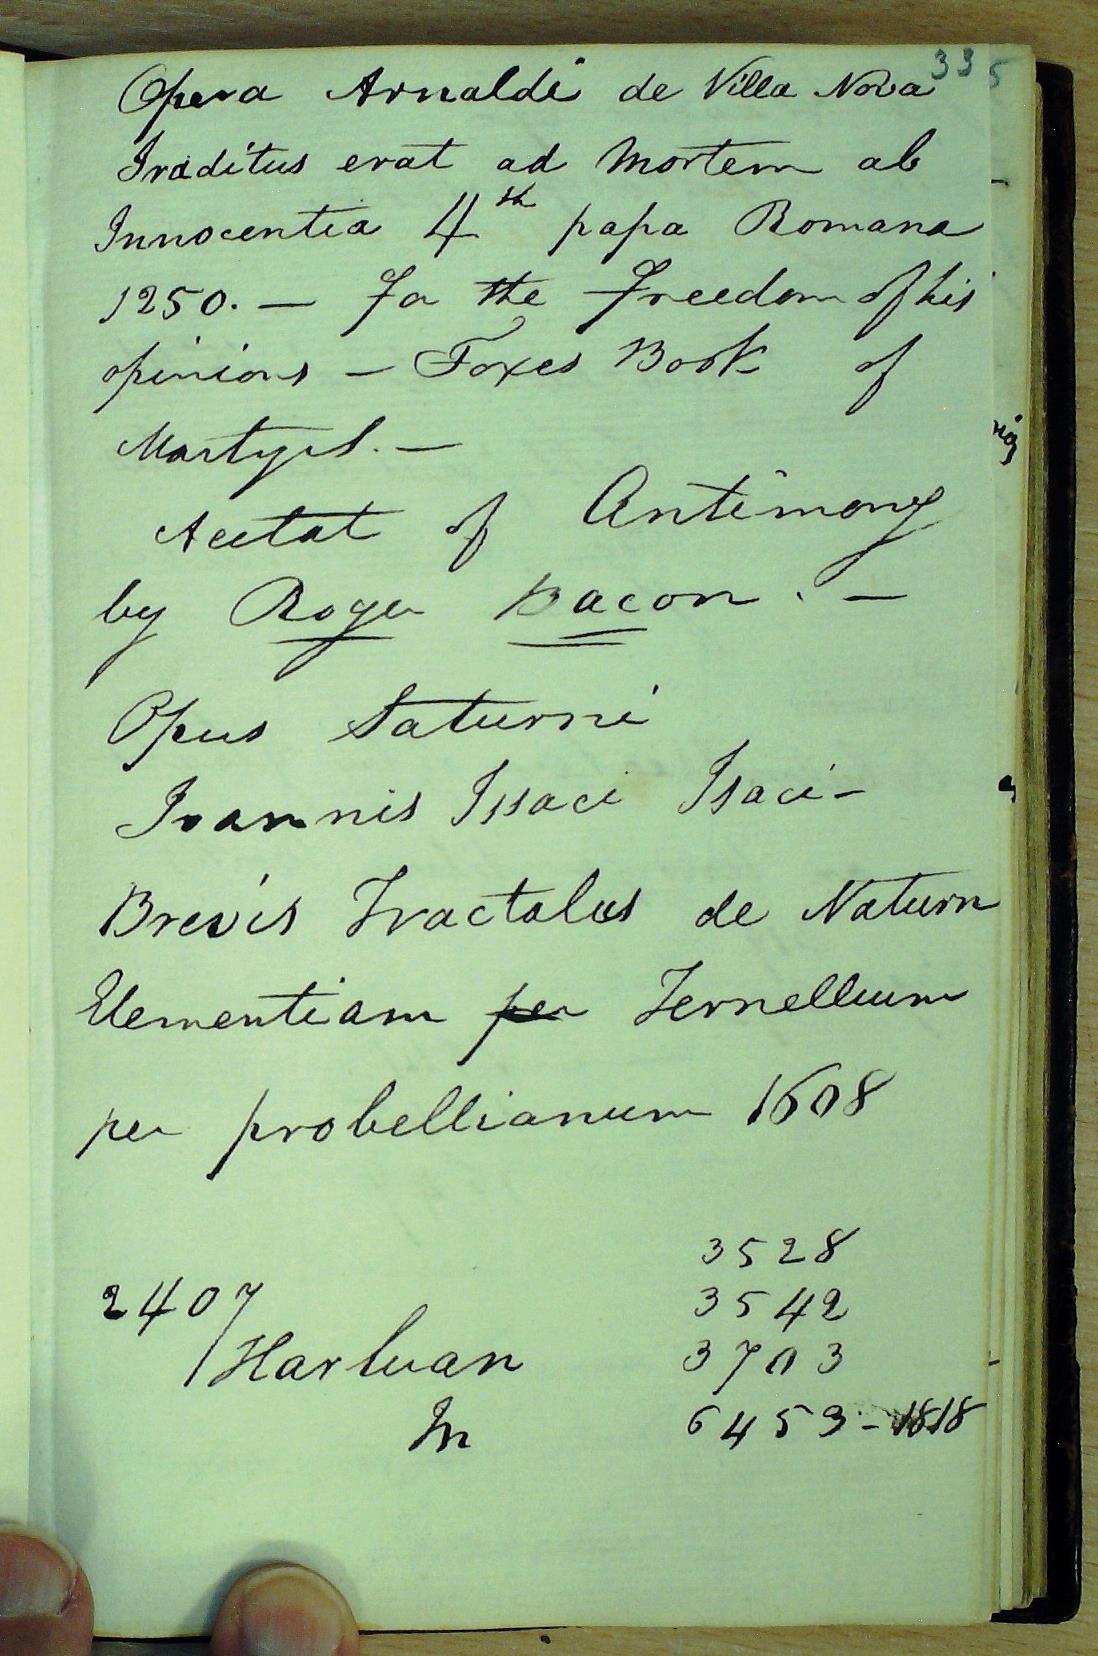 335
Opera Arnaldi de Villa Nova
Traditus erat ad Mortem ab
Innocentia 4th papa Romana
1250. — For the Freedom of his
opinions — Foxes Book of
Martyrs. —
Acetat of Antimony
by Roger Bacon. —
Opus Saturni
Ioannis Issaci Isaci-
Brevis Tractalus de Naturn
Elementiam per Fernellium
per probellianum 1608
3528
2407
3542
Harluan
3703
In
6453 - 1818